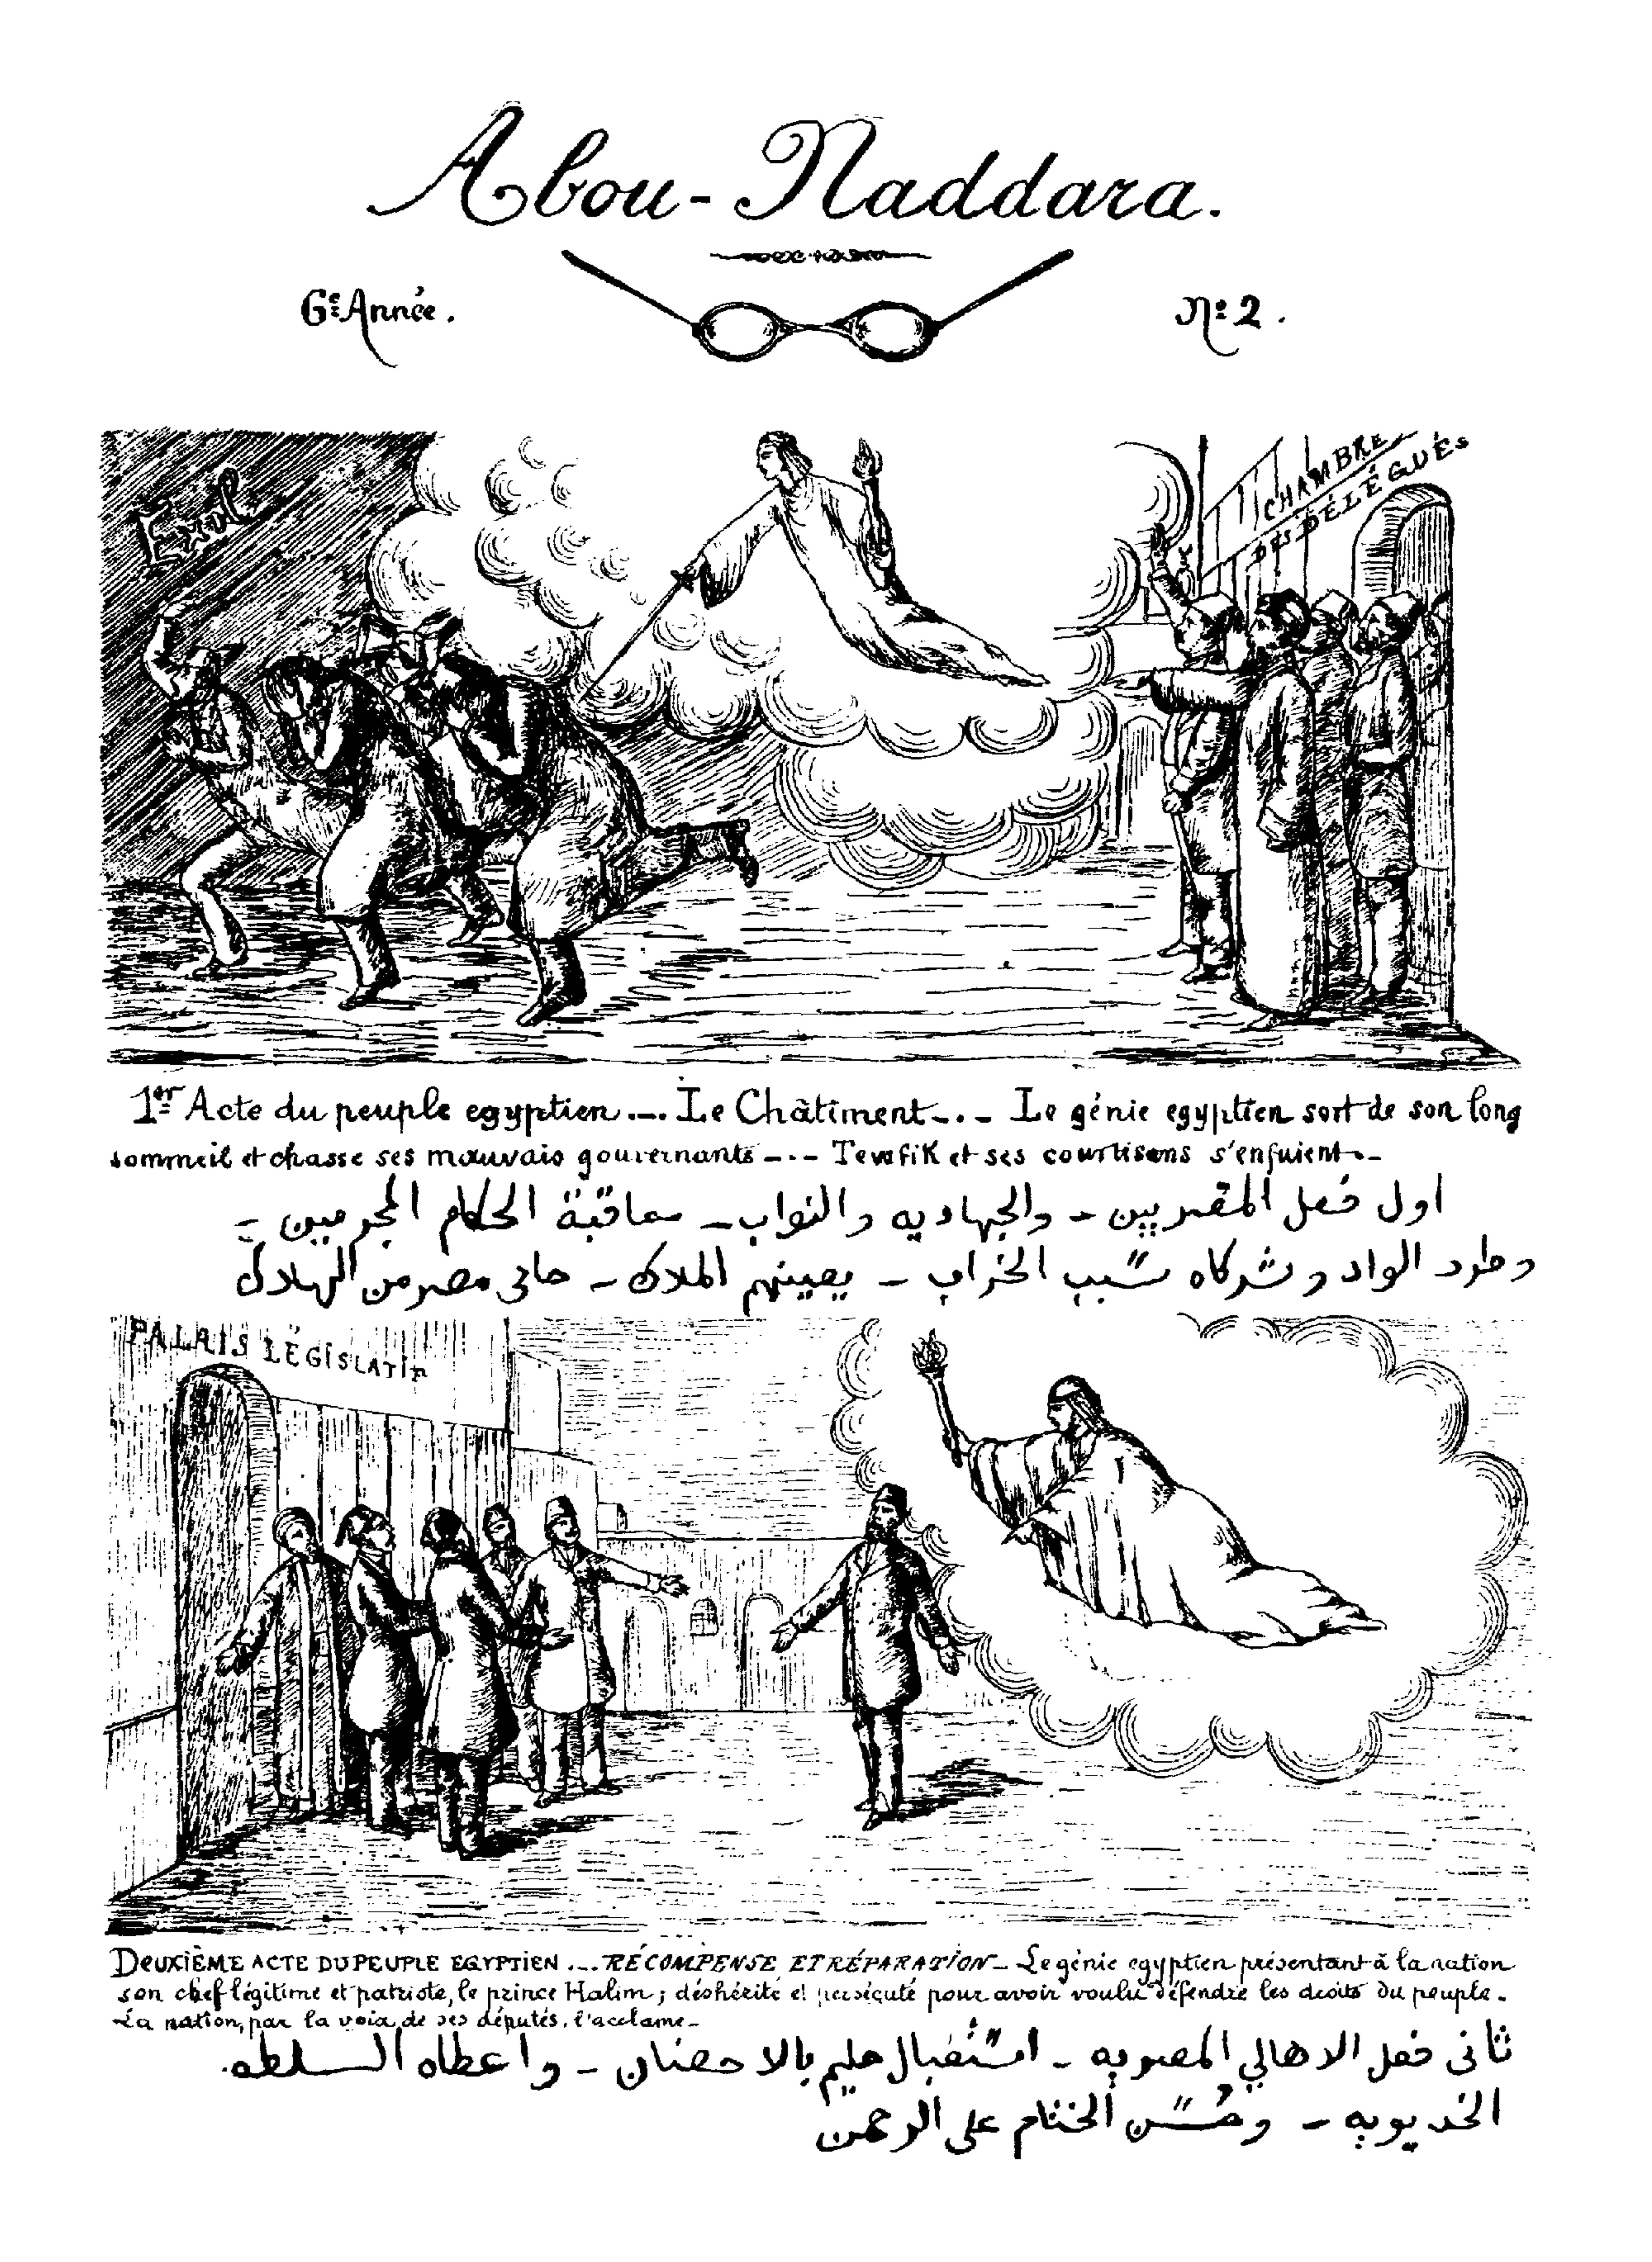 Abou-Naddara.
6e Année.
No 2.
Exil
CHAMBRE
DES DÉLÉGUÉS
1er Acte du peuple egyptien._._ Le Châtiment_._ Le génie egyptien sort de son long
sommeil et chasse ses mauvais gouvernants_._ Tewfik et ses courtisans s'enfuient._
اول فعل المصريين - والجهاديه والنواب - معاقبة الحكام المجرمين -
وطرد الواد وشركاه سبب الخراب - يعينهم الملاك - حامى مصر من الهلاك
PALAIS LÉGISLATIF
DEUXIÈME ACTE DU PEUPLE EGYPTIEN ._._ RÉCOMPENSE ET RÉPARATION_ Le génie egyptien présentant à la nation
son chef légitime et patriote, le prince Halim; déshérité et persécuté pour avoir voulu défendre les droits du peuple.
La nation, par la voix de ses députés, l'acclame_
ثانى فعل الاهالي المصريه - استقبال حليم بالاحضان - واعطاه السلطه
الخديويه - وحسن الختام على الرحمن